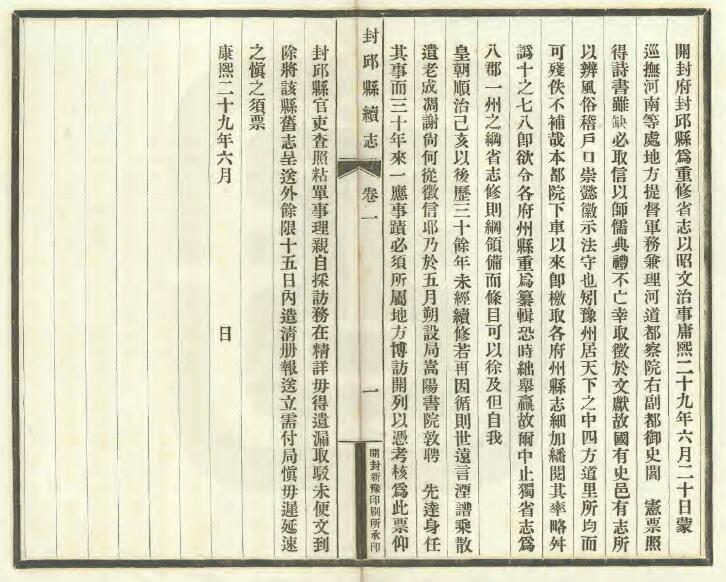 開封府封邱縣爲重修省志以昭文治事庸熙二十九年六月二十日蒙
巡撫河南等處地方提督軍務兼理河道都察院右副都御史閻　憲票照
得詩書雖缺必取信以師儒典禮不亡幸取徵於文獻故國有史邑有志所
以辨風俗稽戶口崇懿徽示法守也矧豫州居天下之中四方道里所均而
可殘佚不補哉本都院下車以來卽檄取各府州縣志細加繙閱其率略舛
譌十之七八卽欲令各府州縣重爲纂輯恐時絀舉贏故爾中止獨省志爲
八郡一州之綱省志修則綱領備而條目可以徐及但自我
皇朝順治己亥以後歷三十餘年未經續修若再因循則世遠言湮譜乘散
遺老成凋謝尙何從徵信耶乃於五月朔設局嵩陽書院敦聘　先達身任
其事而三十年來一應事蹟必須所屬地方博訪開列以憑考核爲此票仰
封邱縣續志
卷一
一
開封新豫印刷所承印
封邱縣官吏査照粘單事理親自採訪務在精詳毋得遺漏取駁未便文到
除將該縣舊志呈送外餘限十五日內造淸册報送立需付局愼毋遲延速
之愼之須票
康熙二十九年六月　　　日